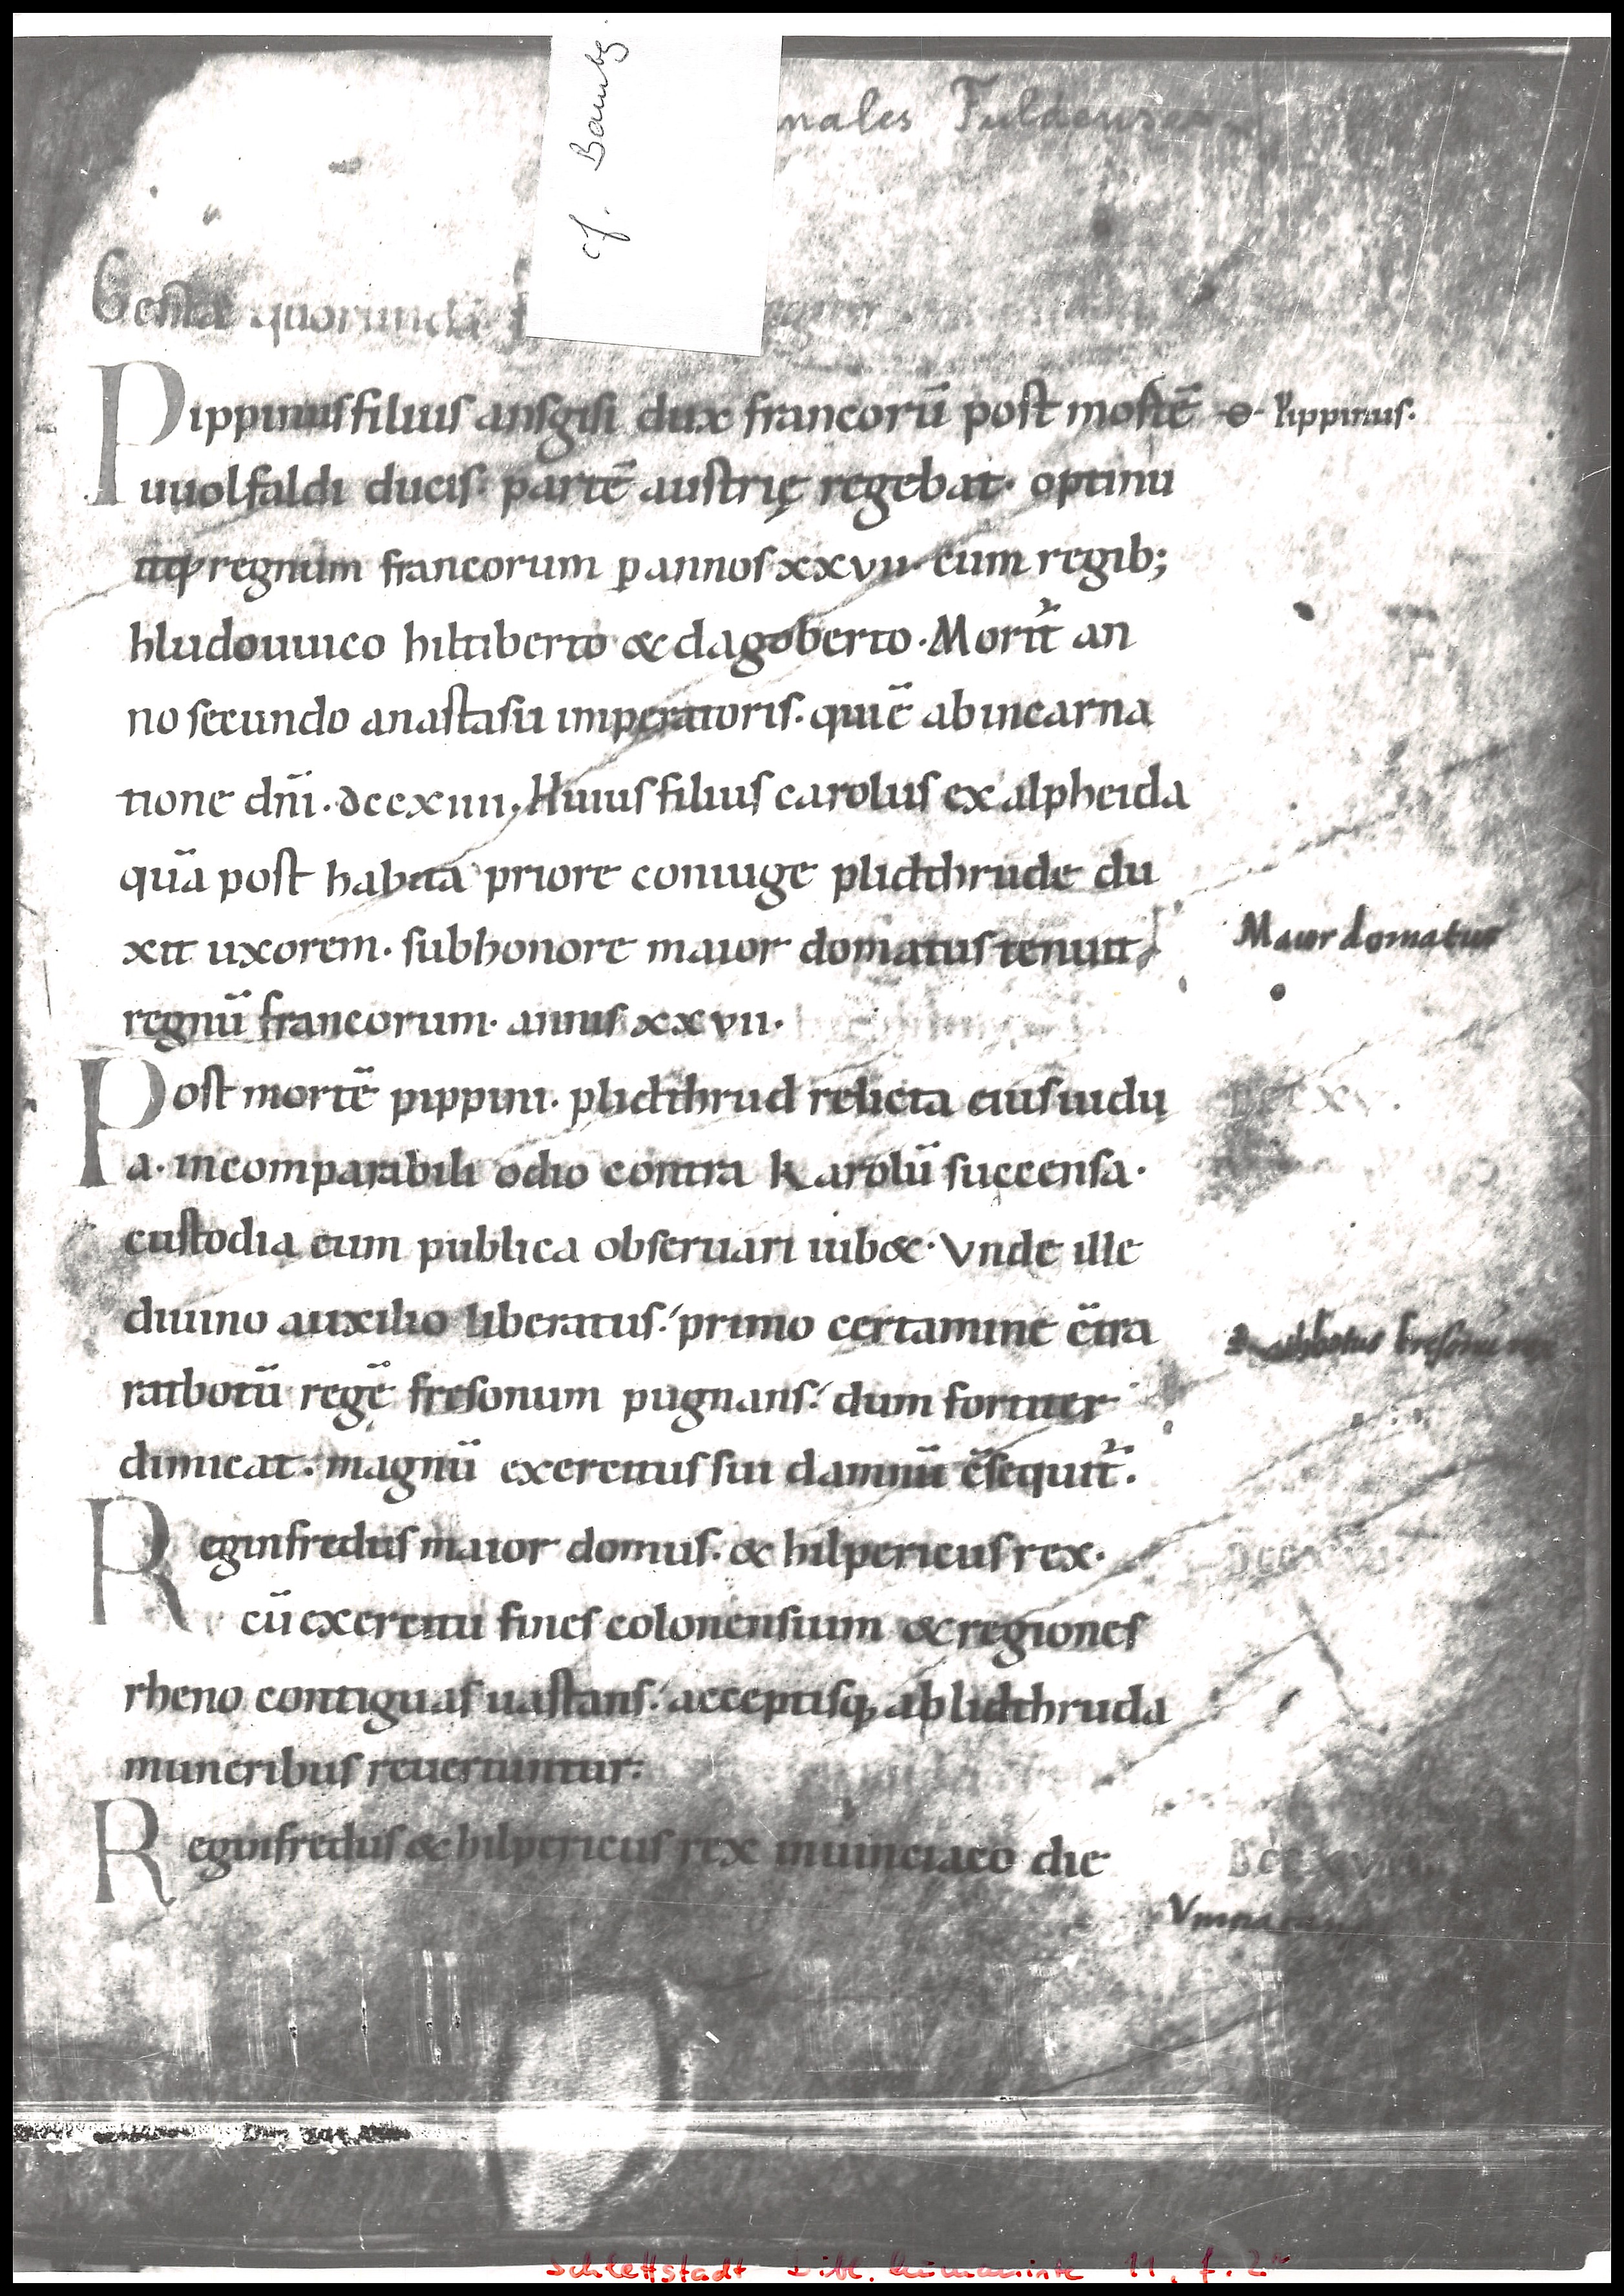 cf. Bambg
nales Fuldenses
Gesta quorundā
Pippinus filius ansgisi dux francorū post mortē Pippinus.
uuolfaldi ducis. partē austrię regebat. optinu
itq; regnum francorum ꝑ annos xxvii cum regib;
hludouuico hiltiberto & dagoberto. Morit̃ an
no secundo anastasii imperatoris. qui ē ab incarna
tione dñi. dccxiiii. Huius filius carolus ex alpheida
quā post habita priore coniuge plidthrude du
xit uxorem. sub honore maior domatus tenuit Maior domatus
regnū francorum. annis xxvii.
Post mortē pippini. plidthrud relicta eius uidu DCCXV.
a. incomparabili odio contra karolū succensa.
custodia eum publica obseruari iub&. Vnde ille
diuino auxilio liberatus. primo certamine c̄tra
ratbotū regē fresonum pugnans. dum fortiter
dimicat. magnū exercitus sui damnū c̄sequit̃.
Reginfredus maior domus. & hilpericus rex.
cū exercitu fines colonensium & regiones
rheno contiguas uastans. acceptisq; ab lidthruda
muneribus reuertuntur.
Reginfredus & hilpericus rex in uinciaco die
Schlettstadt Bibl. humaniste 11, f. 2r